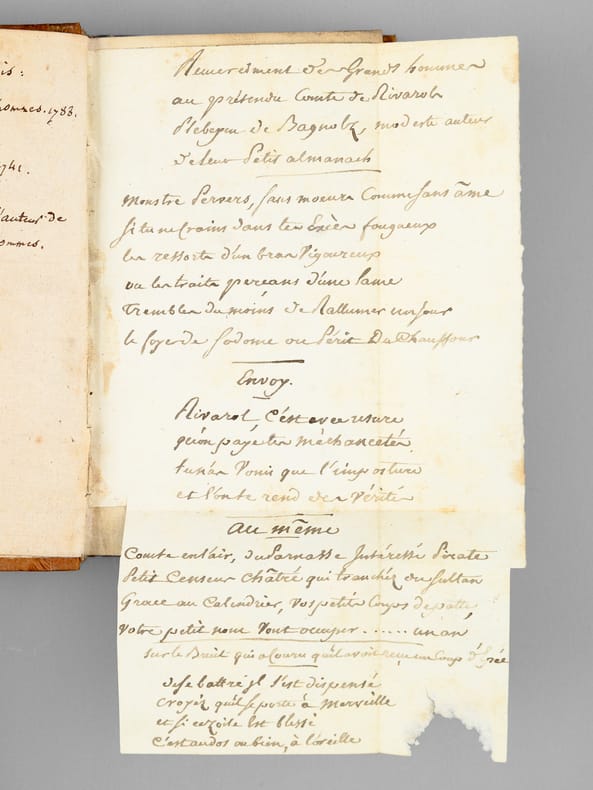 is:
hommes. 1788.
1741.
l'auteur de
ommes.
Remerciment des Grands hommes
au prétendu Comte de Rivarol
Plebeyen de Bagnolz, modeste auteur
de leur Petit almanach
Monstre Pervers, sans moeurs Comme sans âme
si tu ne Crains dans tes Excès fougueux
les ressorts d'un bras Vigoureux
ou les traits perçans d'une lame
Tremble du moins de Rallumer un jour
le foyer de Sodome ou Périt Du Chauffour
Envoy.
Rivarol C'est avec usure
qu'on paye tes méchancetés
tu n'as Vomi que l'imposture
et l'on te rend des Vérités
Au même
Comte en l'air, du Parnasse Intéressé Pirate
Petit Censeur Châtré qui tranchez du Sultan
Grace au Calendrier, Vos petits Coups de patte,
Votre petit nom Vont occuper ...... un an
sur le Bruit qui a Couru qu'il avoit reçu un Coup d'Epée
de se battre il s'est dispensé
Croyez qu'il se porte à Merveille
et si ce zoile Est blessé
C'est au dos ou bien, à l'oreille